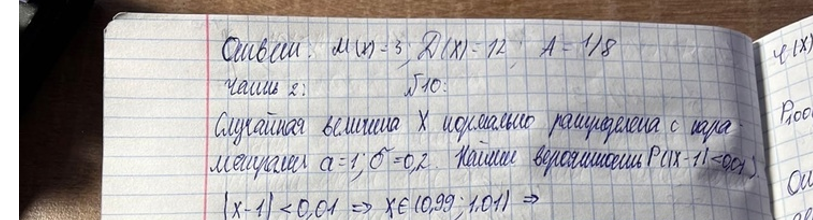 Ответ: M(x)=3; D(X)=12; A=1/8
Часть 2: №10:
Случайная величина X нормально распределена с пара-
метрами a=1; σ=0,2. Найти вероятность P(|X-1|<0,01).
|x-1|<0,01 ⇒ X∈(0,99; 1,01) ⇒
φ(X)